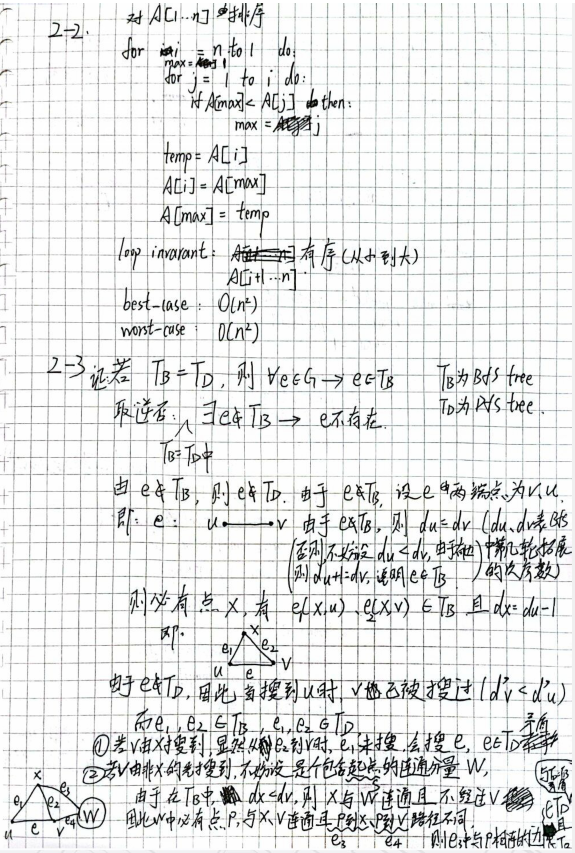 2-2. 对 A[1...n] 排序
for i = n to 1 do:
max = 1
for j = 1 to i do:
if A[max] < A[j] then:
max = j
temp = A[i]
A[i] = A[max]
A[max] = temp
loop invarant: 有序(从小到大)
A[i+1...n]
best-case: O(n²)
worst-case: O(n²)
2-3 证若 T_B = T_D, 则 ∀e∈G → e∈T_B T_B为BFS tree
取逆否: ∃e∉T_B → e不存在. T_D为DFS tree.
T_B=T_D中
由 e∉T_B, 则 e∉T_D. 由于 e∉T_B, 设 e 两端点为 v、u.
即: e: u v 由于 e∉T_B, 则 du=dv (du、dv表BFS
(否则,不妨设 du<dv, 由于 中第几轮拓展
则 du+1=dv, 说明 e∈T_B) 的次序数)
则必有点 X, 有 e₁(x,u)、e₂(x,v) ∈T_B 且 dx=du-1
即: x
e₁ e₂
u e v
由于 e∉T_D, 因此, 当搜到u时, v已被搜过 (d'v < d'u)
而 e₁, e₂ ∈ T_B, e₁, e₂ ∈ T_D 矛盾
① 若v由X搜到, 显然 e₂到v时, e₁未搜, 会搜 e, e∈T_D
② 若v由非X的点搜到, 不妨设是个包含起点的连通分量 W,
由于在T_B中, dx<dv, 则 X与W连通且不经过V
因此W中必有点P, 与X、V连通且P到X、P到V路径不同,
e₃ e₄
则e₃中与P相连的边
x e₁ e₂ e₃ u e v e₄ W